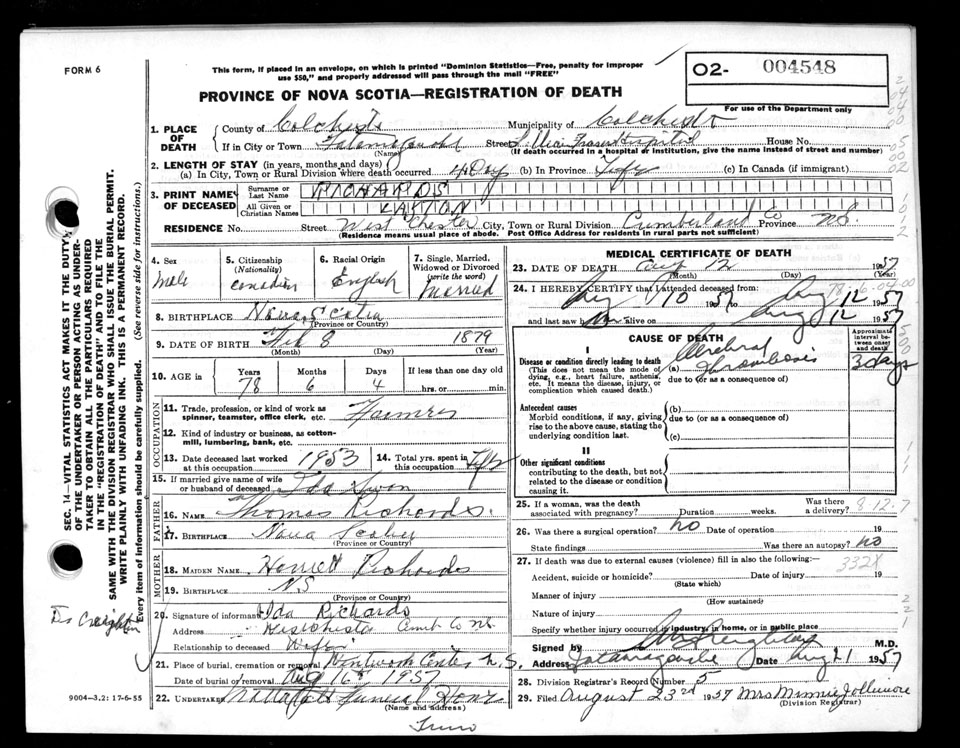 FORM 6
This form, if placed in an envelope, on which is printed "Dominion Statistics—Free, penalty for improper
use $50," and properly addressed will pass through the mail "FREE"
02- 004548
For use of the Department only
PROVINCE OF NOVA SCOTIA—REGISTRATION OF DEATH
1. PLACE OF DEATH
County of Colchester Municipality of Colchester
If in City or Town Street Lillian Fraser Hospital House No.
(Name) (If death occurred in a hospital or institution, give the name instead of street and number)
2. LENGTH OF STAY (in years, months and days)
(a) In City, Town or Rural Division where death occurred 4 Day (b) In Province Life (c) In Canada (if immigrant)
3. PRINT NAME OF DECEASED
Surname or Last Name RICHARDS
All Given or Christian Names
RESIDENCE No. Street West Chester City, Town or Rural Division Cumberland Co Province N.S.
(Residence means usual place of abode. Post Office Address for residents in rural parts not sufficient)
4. Sex Male
5. Citizenship (Nationality) Canadian
6. Racial Origin English
7. Single, Married, Widowed or Divorced (write the word) Married
8. BIRTHPLACE Nova Scotia
(Province or Country)
9. DATE OF BIRTH Feb 8 1879
(Month) (Day) (Year)
10. AGE in Years 78 Months 6 Days 4 If less than one day old
hrs. or min.
OCCUPATION
11. Trade, profession, or kind of work as spinner, teamster, office clerk, etc. Farmer
12. Kind of industry or business, as cotton-mill, lumbering, bank, etc.
13. Date deceased last worked at this occupation 1953
14. Total yrs. spent in this occupation Life
15. If married give name of wife or husband of deceased Ida
FATHER
16. NAME Thomas Richards
17. BIRTHPLACE Nova Scotia
(Province or Country)
MOTHER
18. MAIDEN NAME Richards
19. BIRTHPLACE N S
(Province or Country)
20. Signature of informant Ida Richards
Address Westchester
Relationship to deceased Wife
21. Place of burial, cremation or removal Wentworth Centre N.S.
Date of burial or removal Aug 16 1957
22. UNDERTAKER Funeral Home
(Name and address)
Truro
MEDICAL CERTIFICATE OF DEATH
23. DATE OF DEATH Aug 12 1957
(Month) (Day) (Year)
24. I HEREBY CERTIFY that I attended deceased from:
Aug 10 1957 to Aug 12 1957
and last saw him alive on Aug 12 1957
78-6-04-00
CAUSE OF DEATH
Approximate interval between onset and death
I
Disease or condition directly leading to death
(This does not mean the mode of dying, e.g., heart failure, asthenia, etc. It means the disease, injury, or complication which caused death.)
(a) Cerebral Thrombosis 3 days
due to (or as a consequence of)
Antecedent causes
Morbid conditions, if any, giving rise to the above cause, stating the underlying condition last.
(b)
due to (or as a consequence of)
(c)
II
Other significant conditions
contributing to the death, but not related to the disease or condition causing it.
25. If a woman, was the death associated with pregnancy? Duration weeks. Was there a delivery?
8-12-7
26. Was there a surgical operation? no Date of operation 19
State findings Was there an autopsy? no
27. If death was due to external causes (violence) fill in also the following:
332X
Accident, suicide or homicide? Date of injury 19
(State which)
Manner of injury
(How sustained)
Nature of injury
Specify whether injury occurred in industry, in home, or in public place
Signed by M.D.
Address Tatamagouche Date Aug 21 1957
28. Division Registrar's Record Number 5
29. Filed August 23rd 1957 Mrs Minnie
(Division Registrar)
SEC. 14—VITAL STATISTICS ACT MAKES IT THE DUTY
OF THE UNDERTAKER OR PERSON ACTING AS UNDER-
TAKER TO OBTAIN ALL THE PARTICULARS REQUIRED
IN THE "REGISTRATION OF DEATH" AND TO FILE THE
SAME WITH THE DIVISION REGISTRAR WHO SHALL ISSUE THE BURIAL PERMIT.
WRITE PLAINLY WITH UNFADING INK. THIS IS A PERMANENT RECORD.
Every item of information should be carefully supplied. (See reverse side for instructions.)
Dr Creighton
9004-3.2: 17-6-55